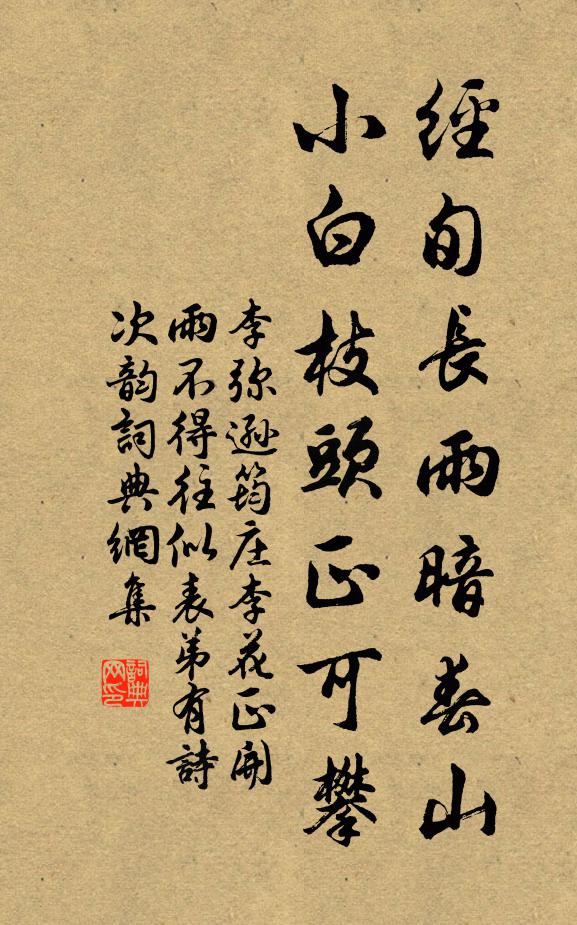 經旬長雨暗春山
小白枝頭正可攀
李弥遜筠庄李花正開
雨不得往似表弟有詩
次韵詞典網集
詞典网印